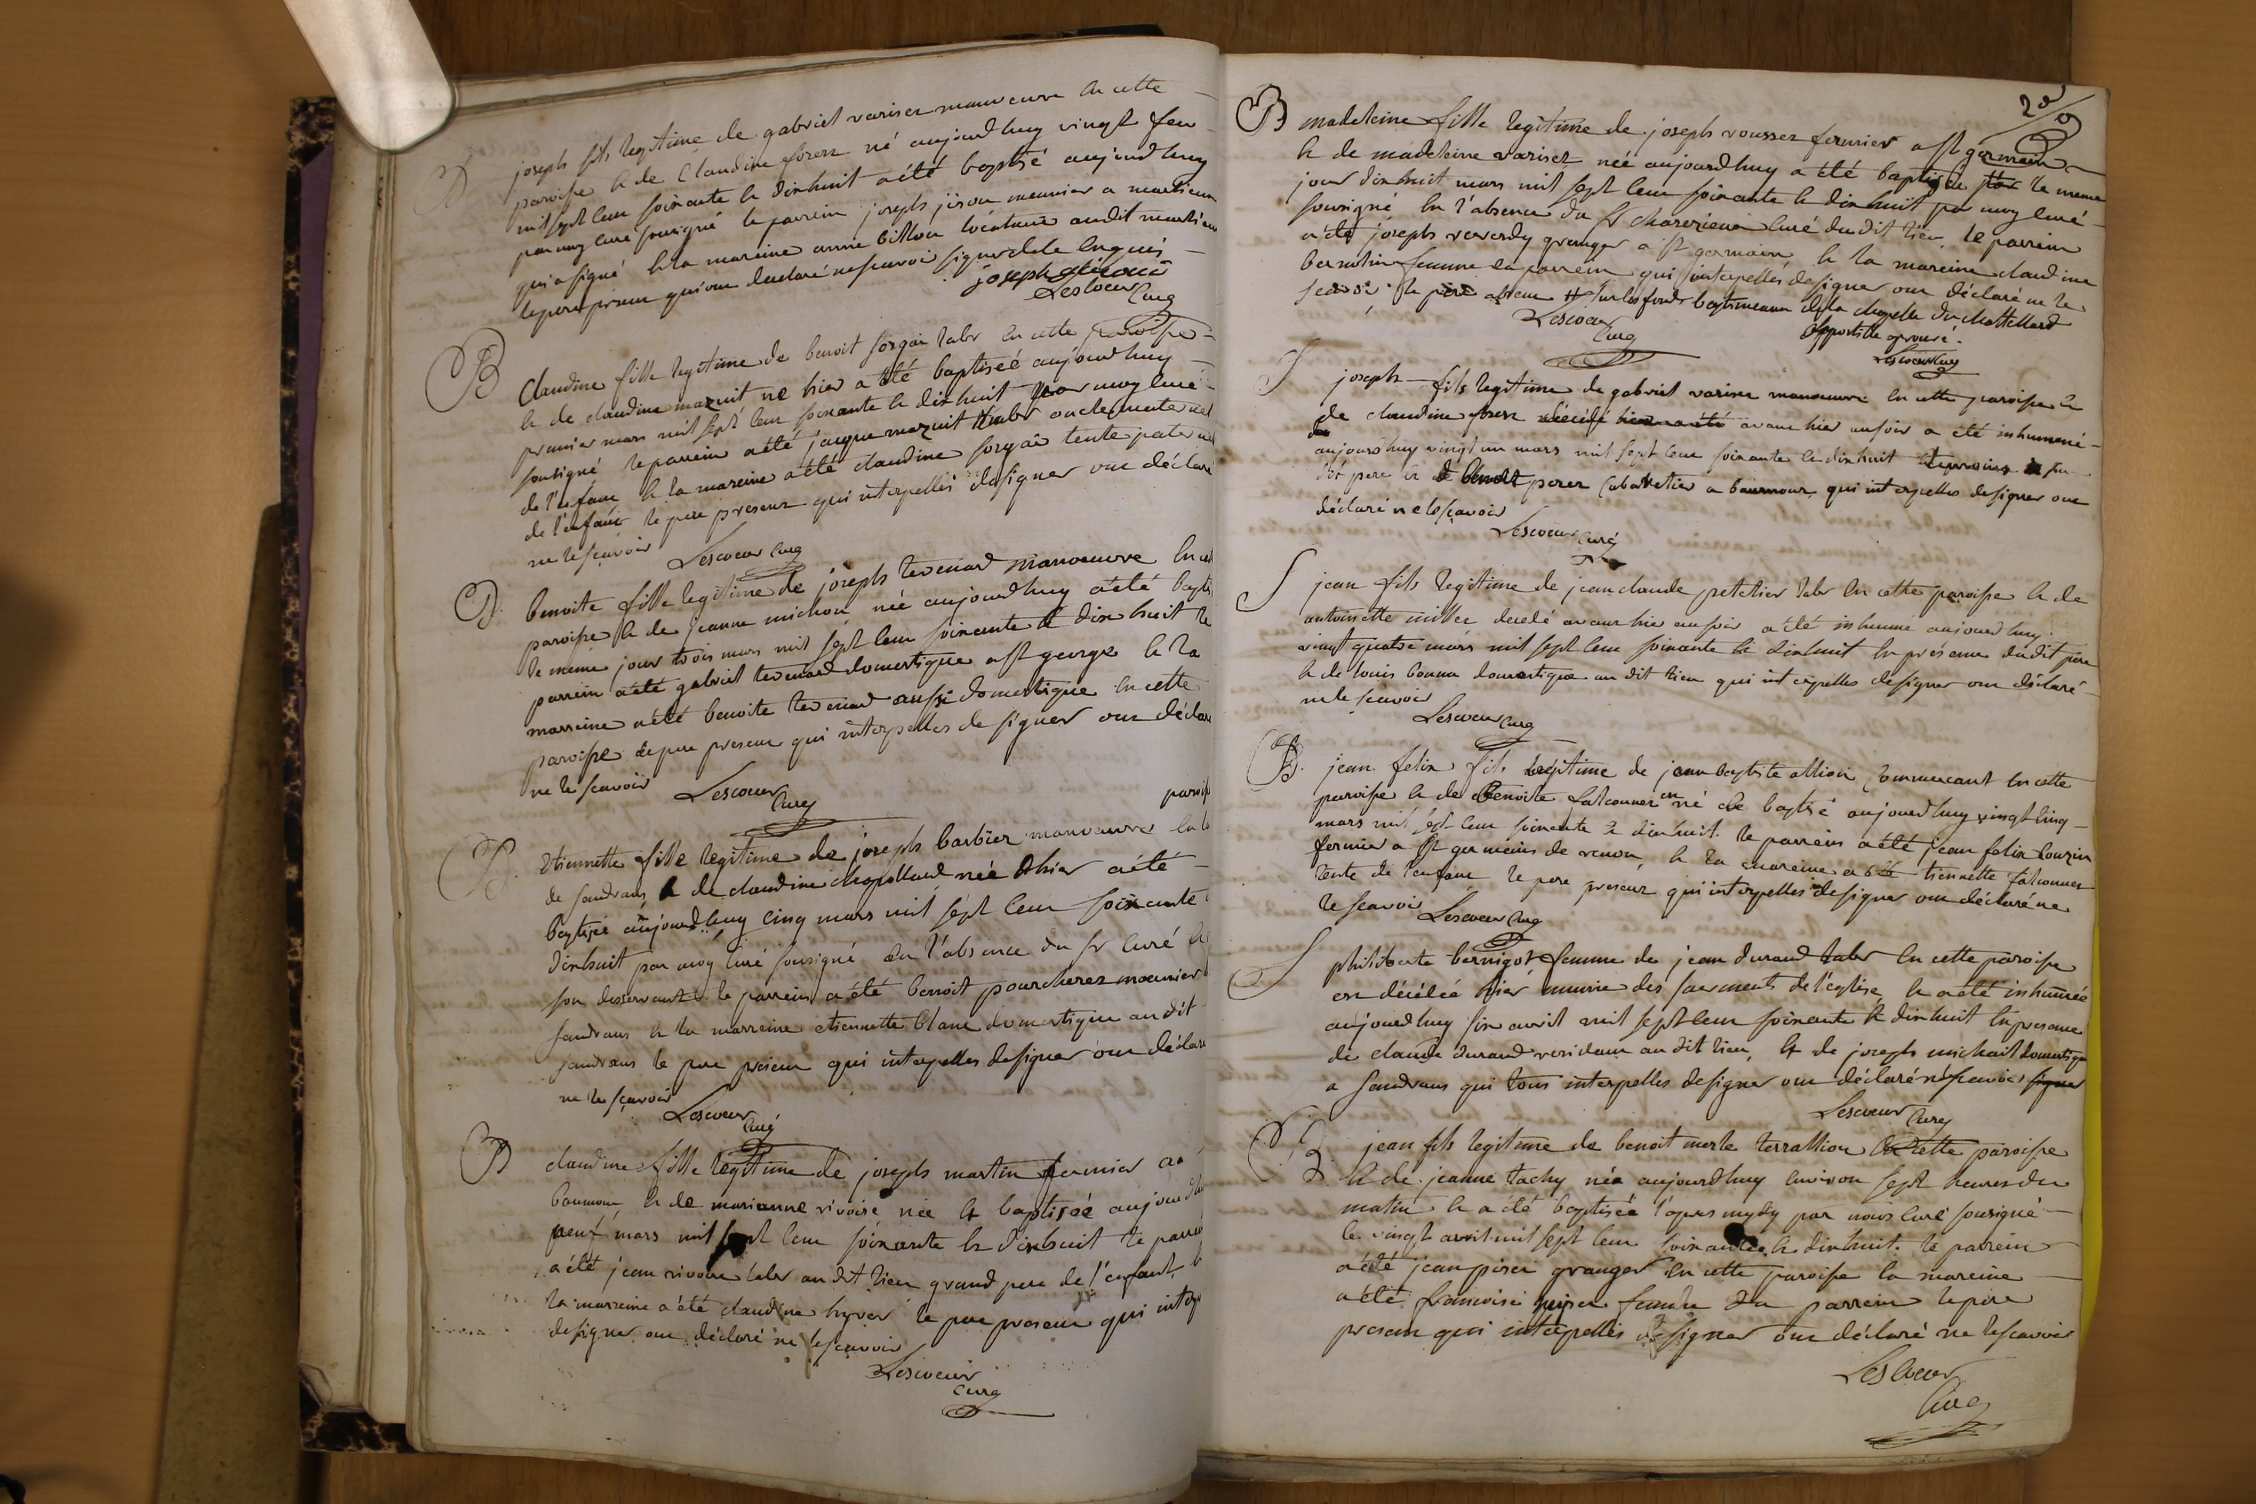 B
joseph fils legitime de gabriel varisez manoeuvre en cette
paroisse & de Claudine forere né aujourdhuy vingt feu
mil sept cens soixante & dixhuit a été baptisé aujourdhuy
par moy curé sousigné le parrein joseph jirou meunier a
qui a signé & la mareine anne billou locataire audit
le pere presens qui ont declaré ne scavoir signer de ce enquis
joseph
Lescoeur
Curé
B
Claudine fille legitime de benoit forgai labr en cette paroisse
& de claudine mazuit né hier a été baptiseé aujourdhuy
premier mars mil sept cens soixante & dixhuit par moy curé
sousigné le parrein a été jacque mazuit labr oncle maternel
de l'enfant & la mareine a été claudine forgai tente paternel
de l'enfant le pere presens qui interpellés de signer ont déclaré
ne le scavoir
Lescoeur Curé
B.
benoite fille legitime de joseph tevenard manoeuvre en cet
paroisse & de jeanne michou née aujourdhuy a été bapti
le meme jour trois mars mil sept cens soixante & dix huit le
parrein a été gabriel tevenard domestique a st george & la
marreine a été benoite tevenard aussi domestique en cette
paroisse le pere presens qui interpellés de signer ont déclaré
ne le scavoir
Lescoeur
Curé
parois
B.
Etiennette fille legitime de joseph barbier manoeuvre en la
de sandrans & de claudine chapolland née hier a été
baptisée aujourdhuy cinq mars mil sept cens soixante
dixhuit par moy curé sousigné en l'absence du sr curé
son desservant le parrein a été benoit pourcherez meunier
sandrans & la marreine etiennette blanc domestique au dit
sandrans le pere presens qui interpellés de signer ont déclaré
ne le scavoir
Lescoeur
Curé
B
claudine fille legitime de joseph martin fermier a
baumour & de marianne rivoire née & baptiseé aujourdh
neuf mars mil sept cens soixante & dixhuit le parre
a été jean rivoire labr au dit lieu grand pere de l'enfant
la marreine a été claudine hyver le pere presens qui interp
de signer ont déclaré ne le scavoir
Lescoeur
Curé
B
madeleine fille legitime de joseph rousset fermier a st germain
& de madeleine varisez née aujourdhuy a été baptisée le meme
jour dixhuit mars mil sept cens soixante & dixhuit par moy curé
sousigné en l'absence du sr curé dudit lieu, le parrein
a été joseph reverdy granger a st germain & la mareine claudine
bernolin femme du parrein qui interpellés de signer ont déclaré ne le
scavoir le pere absent # sur les fonds baptismaux de la chapelle du chattellard
Lescoeur
Curé
Appostille aprouvé
Lescoeur Curé
S
joseph fils legitime de gabriel varisez manoeuvre en cette paroisse &
de claudine forere avant hier au soir a été inhummé
aujourdhuy vingt un mars mil sept cens soixante & dixhuit
dit pere & de benoit perez cabaretier a baumour qui interpellés de signer ont
déclaré ne le scavoir
Lescoeur Curé
S
jean fils legitime de jean claude pelletier labr en cette paroisse & de
antoinette millier decedé avant hier au soir a été inhumé aujourdhuy
vingt quatre mars mil sept cens soixante & dixhuit en presence dudit pere
& de louis bonnu domestique au dit lieu qui interpellés de signer ont déclaré
ne le scavoir
Lescoeur Curé
B.
jean felix fils legitime de jean baptiste allion commercant en cette
paroisse & de Benoite falconnet né & baptisé aujourdhuy vingt cinq
mars mil sept cens soixante & dixhuit. le parrein a été jean felix Couzin
fermier a st germain de renon, & la mareine a été tiennette falconnet
tente de l'enfant le pere presens qui interpellés de signer ont déclaré ne
le scavoir
Lescoeur Curé
S
philiberte bernigot femme de jean durand labr en cette paroisse
est décédée hier munie des sacrements de l'eglise, & a été inhumée
aujourdhuy six avril mil sept cens soixante & dixhuit en presence
de claude durand residant au dit lieu, & de joseph michail domestique
a sandrans qui tous interpellés de signer ont déclaré ne scavoir signer
Lescoeur Curé
B.
jean fils legitime de benoit merle terrallion en cette paroisse
& de jeanne tachy née aujourdhuy environ sept heures du
matin & a été baptiseé l'apres mydy par nous curé sousigné
le vingt avril mil sept cens soixante & dixhuit. le parrein
a été jean pirei granger en cette paroisse la mareine
a été francoise femme du parrein le pere
presens qui interpellés de signer ont déclaré ne le scavoir
Lescoeur
Curé